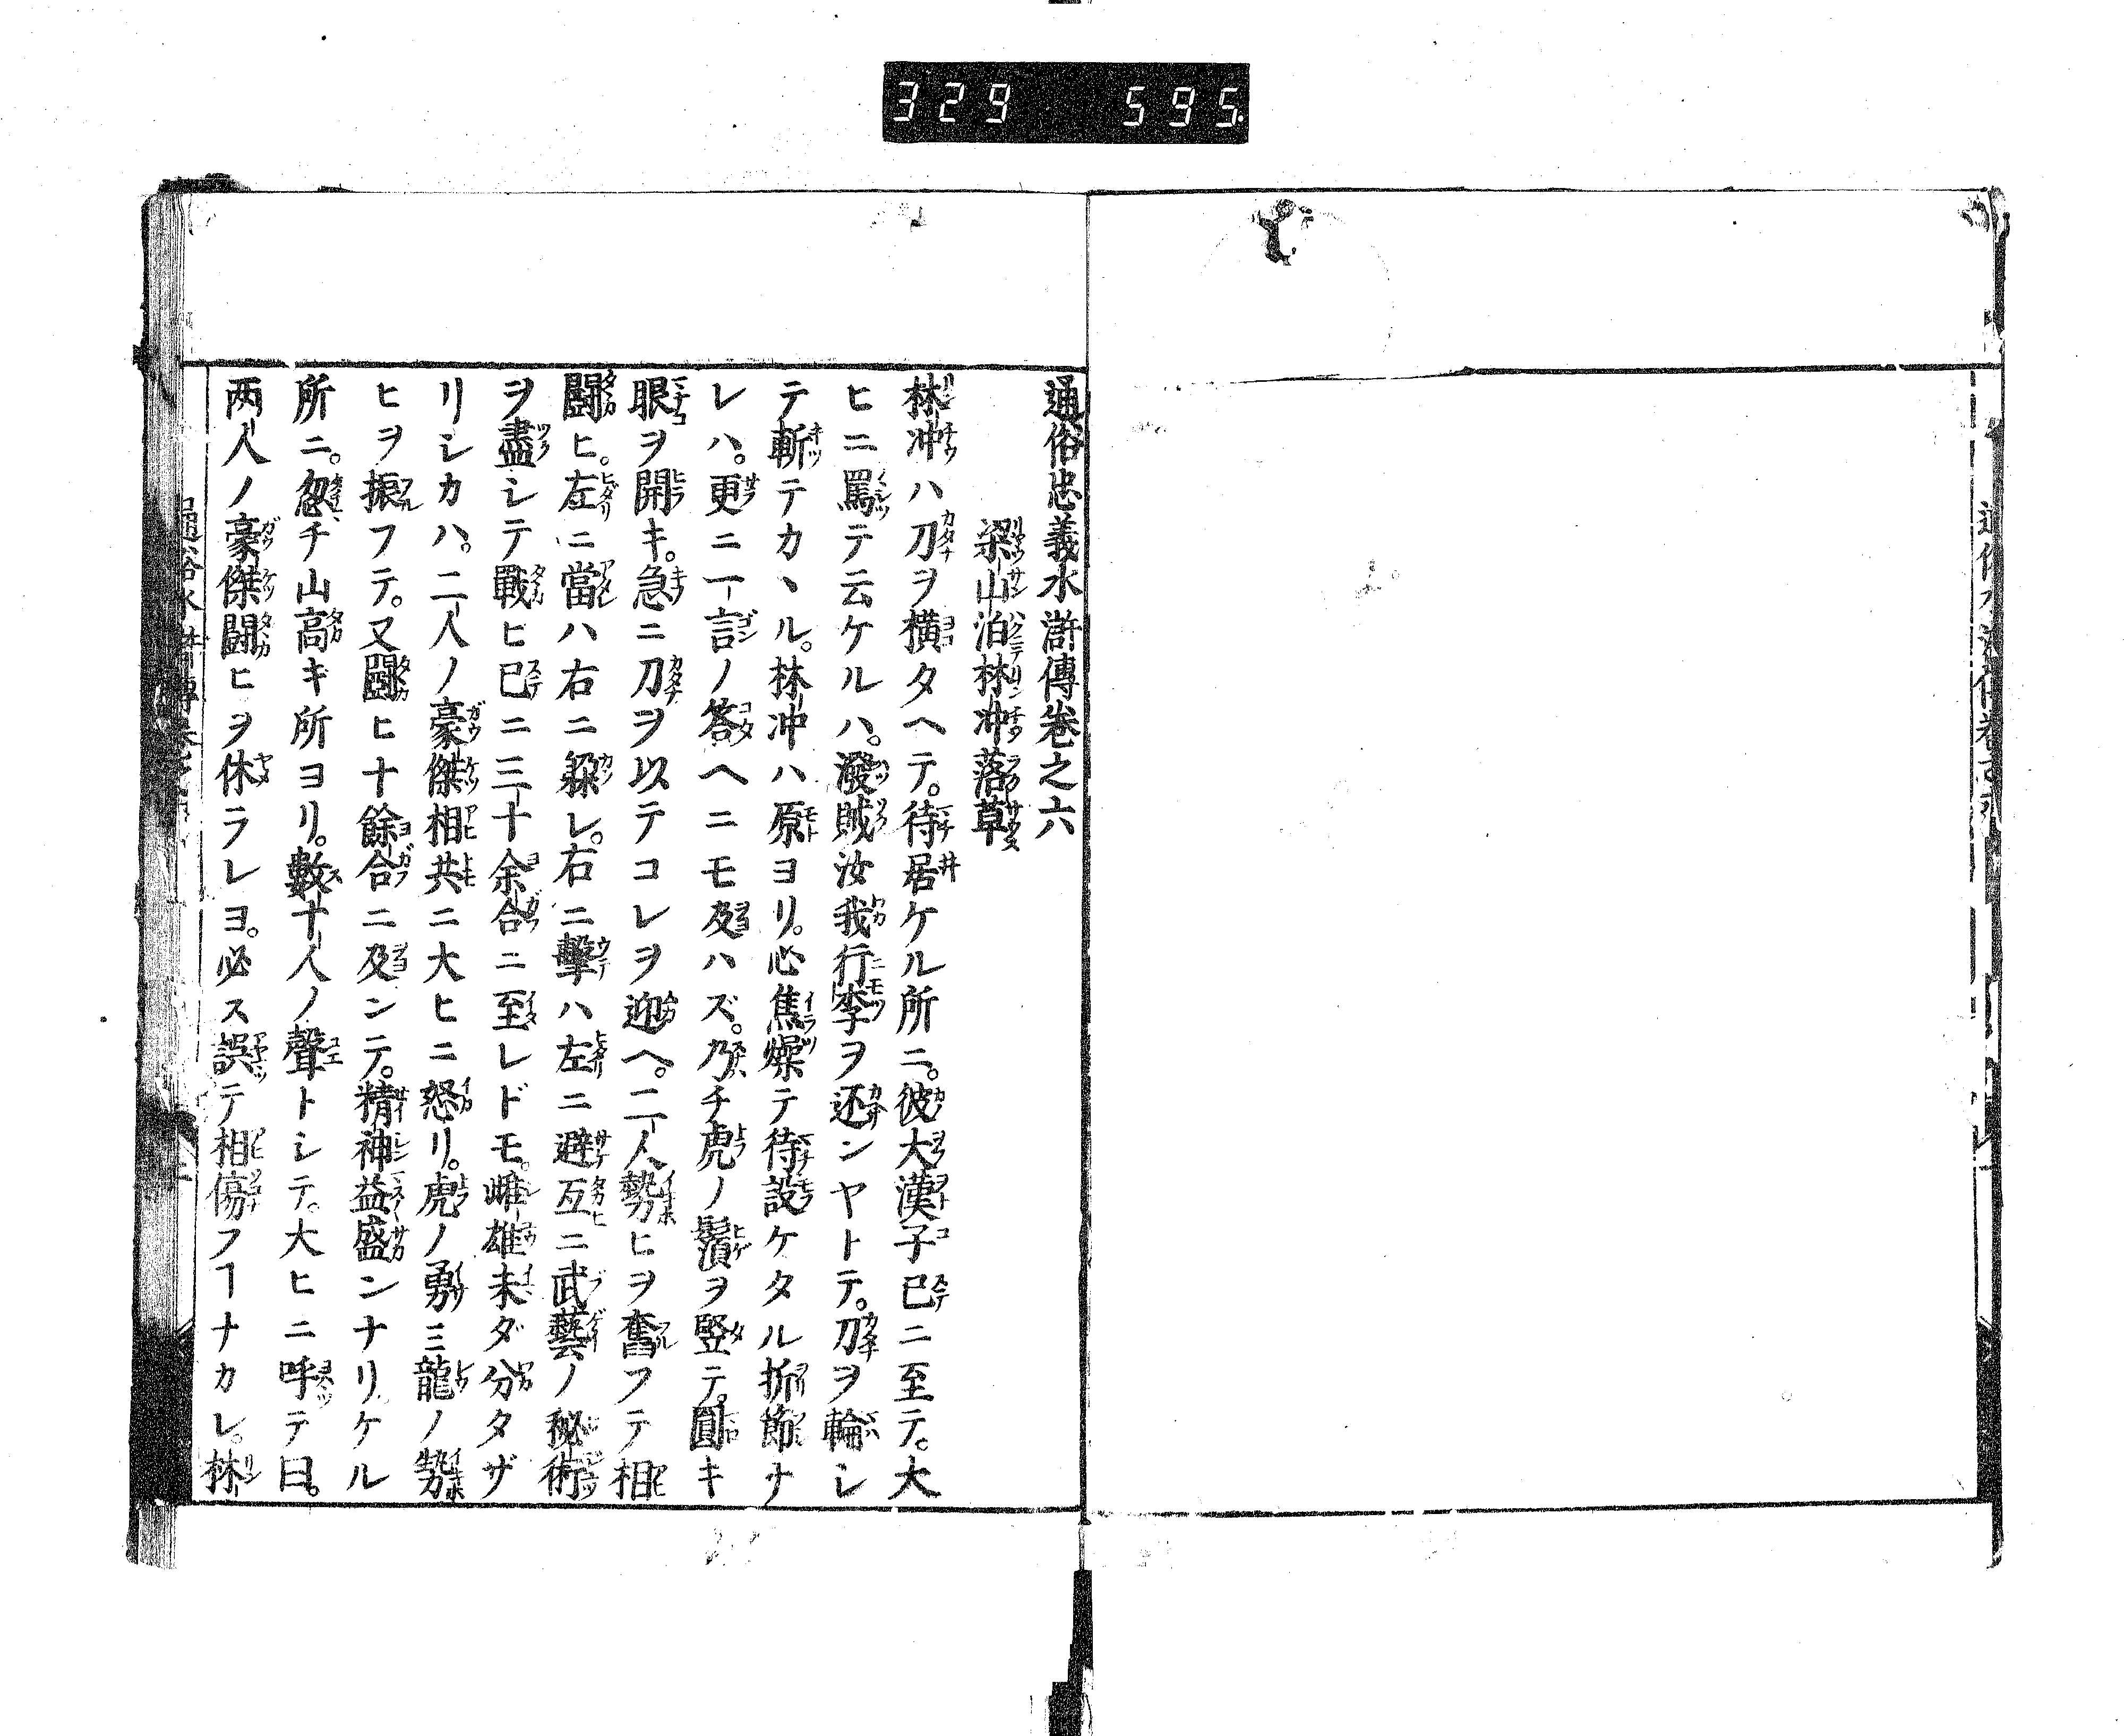 329 595
通俗忠義水滸傳卷之六
梁山泊林冲落草
林冲ハ刀ヲ横タヘテ。待居ケル所ニ。彼大漢子已ニ至テ。大
ヒニ罵テ云ケルハ。潑賊汝我行李ヲ还ンヤトテ。刀ヲ輪シ
テ斬テカヽル。林冲ハ原ヨリ。必焦燥テ待設ケタル折節ナ
レハ。更ニ一言ノ答ヘニモ及ハズ。乃チ虎ノ鬚ヲ竪テ。圓キ
眼ヲ開キ。急ニ刀ヲ以テコレヲ迎ヘ。二人勢ヒヲ奮フテ相
闘ヒ。左ニ當ハ右ニ躱レ。右ニ擊ハ左ニ避互ニ武藝ノ秘術
ヲ盡シテ戰ヒ已ニ三十余合ニ至レドモ。雌雄未ダ分タザ
リシカハ。二人ノ豪傑相共ニ大ヒニ怒リ。虎ノ勇ミ龍ノ勢
ヒヲ振フテ。又闘ヒ十餘合ニ及ンテ。精神益盛ンナリケル
所ニ。忽チ山高キ所ヨリ。數十人ノ聲トシテ。大ヒニ呼テ曰。
两人ノ豪傑闘ヒヲ休ラレヨ。必ス誤テ相傷フヿナカレ。林